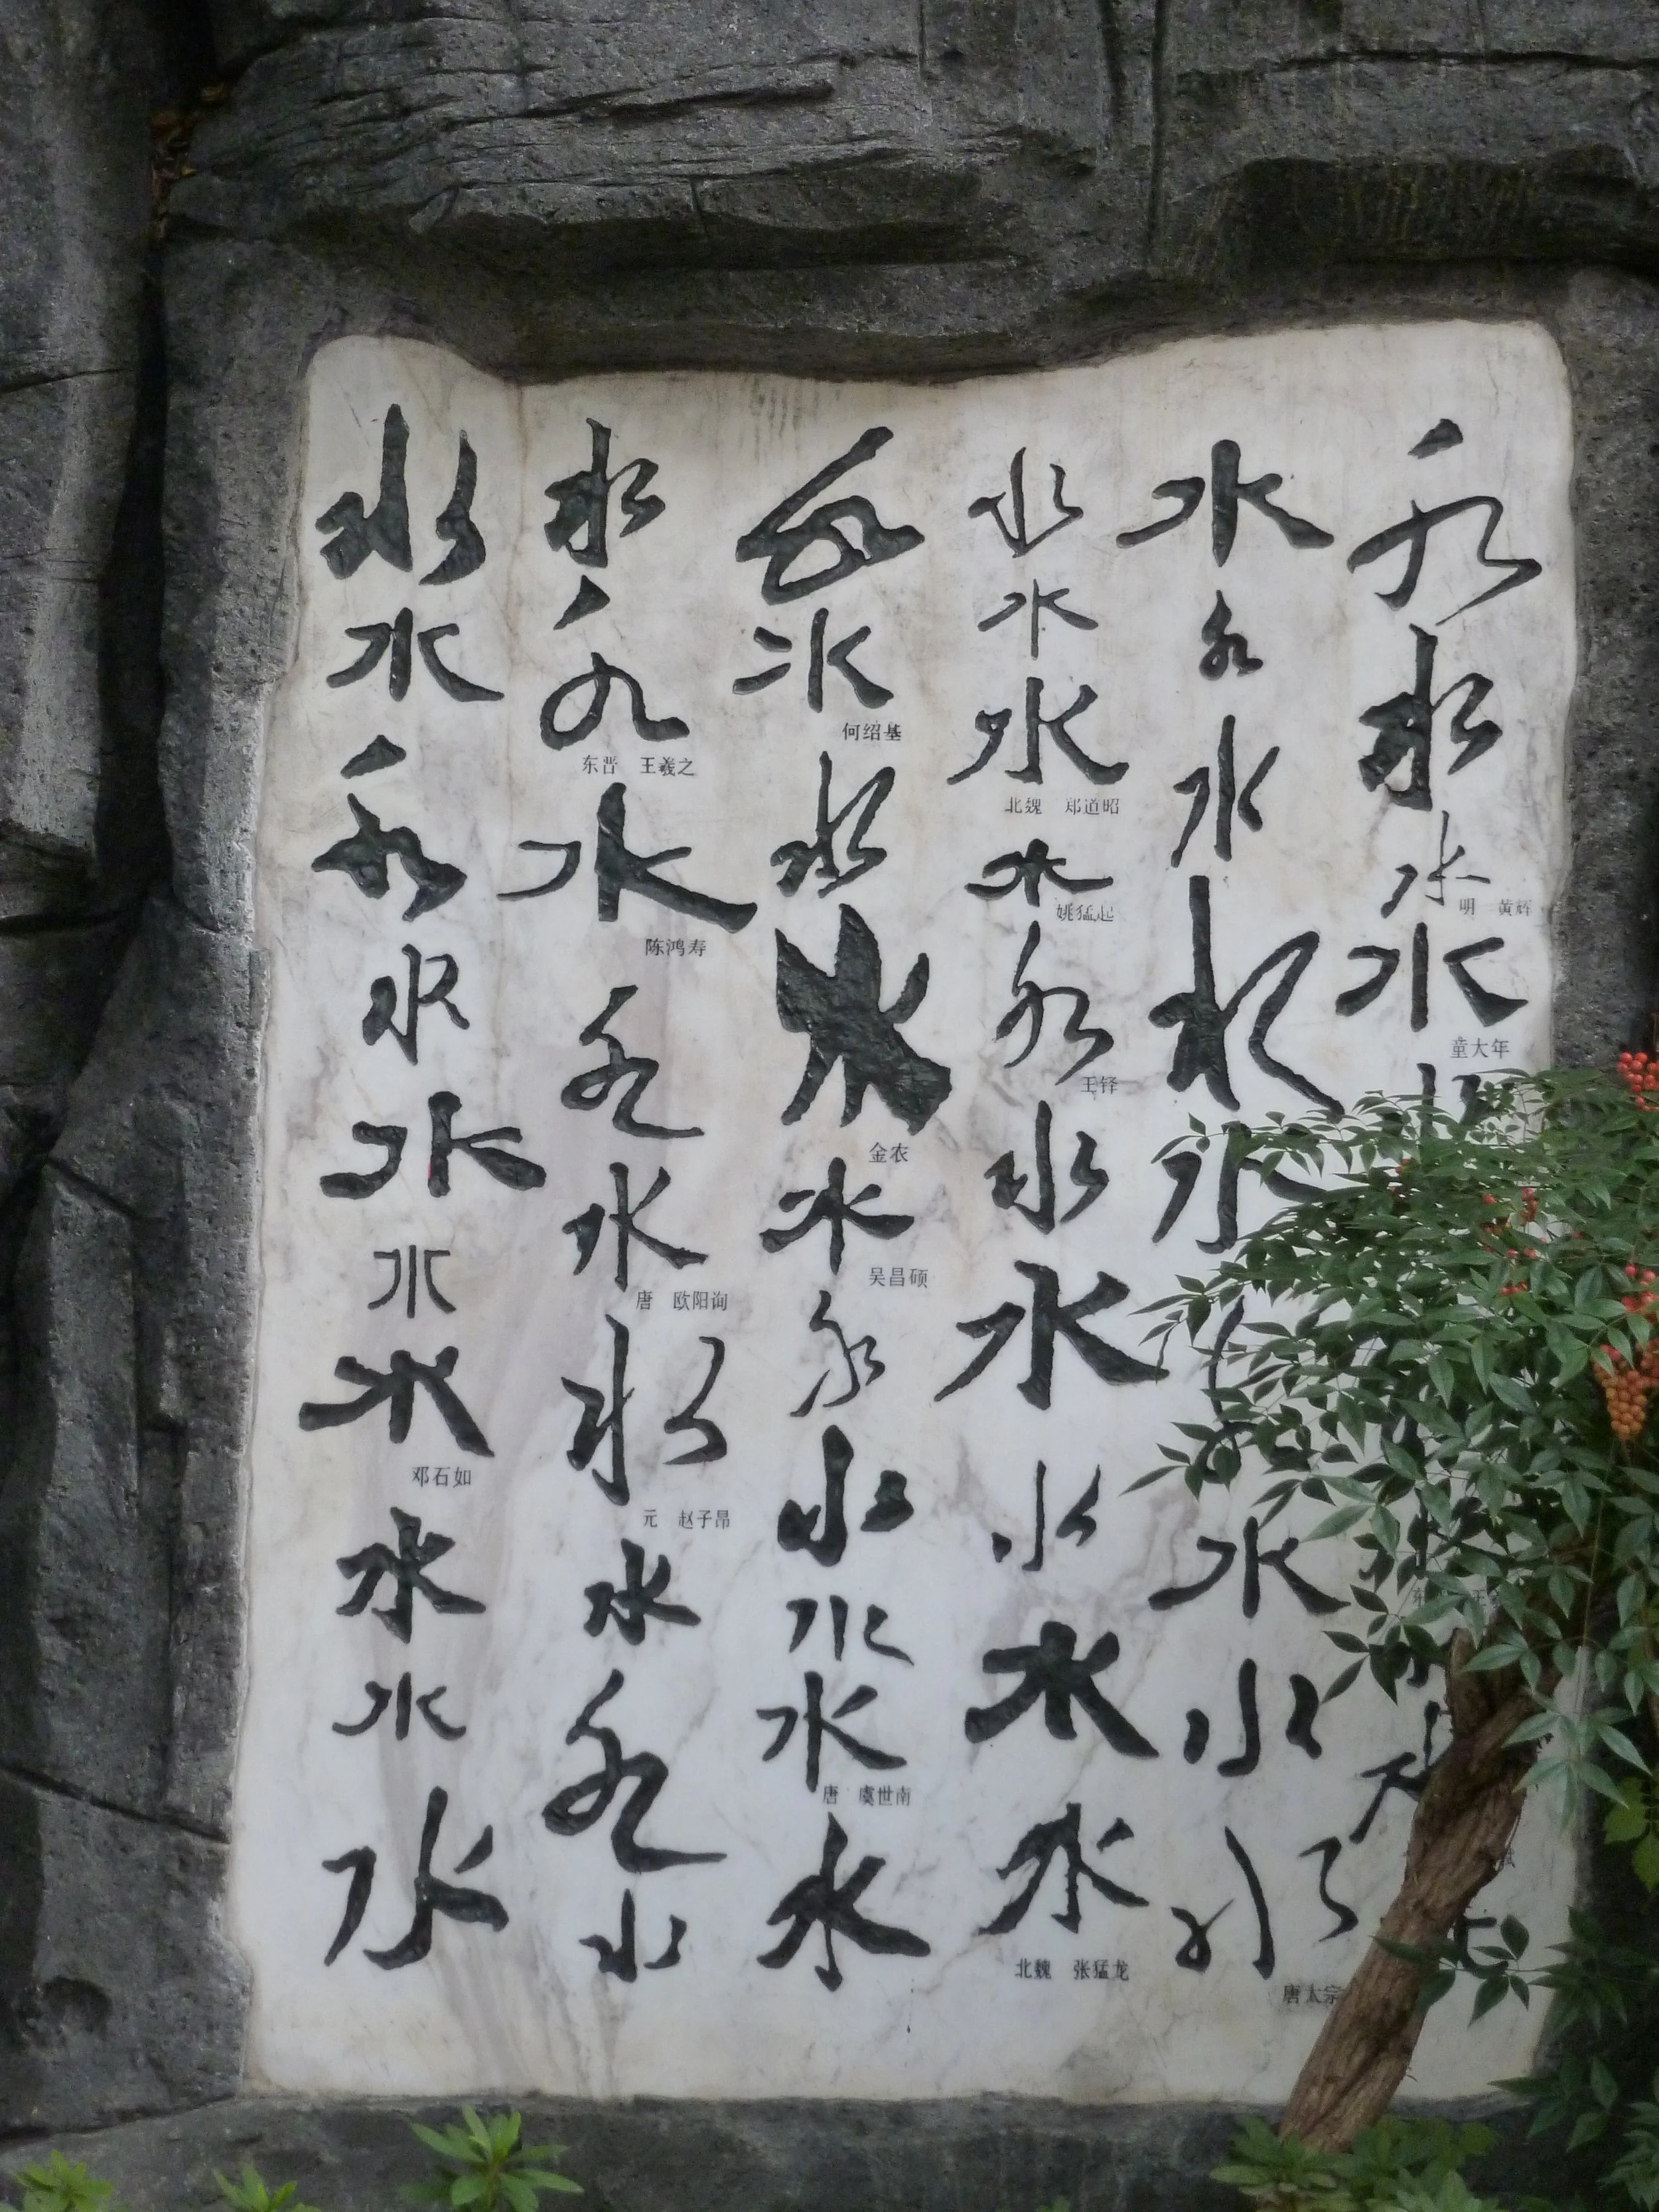 水水水
明 黄辉
水
童大年
水水水水水水水水水
唐太宗
水水水
北魏 郑道昭
水
姚猛起
水
王铎
水水水水水
北魏 张猛龙
水水
何绍基
水水
金农
水
吴昌硕
水水水水
唐 虞世南
水
水水
东晋 王羲之
水
陈鸿寿
水水
唐 欧阳询
水
元 赵子昂
水水水
水水水水水水水
邓石如
水水水